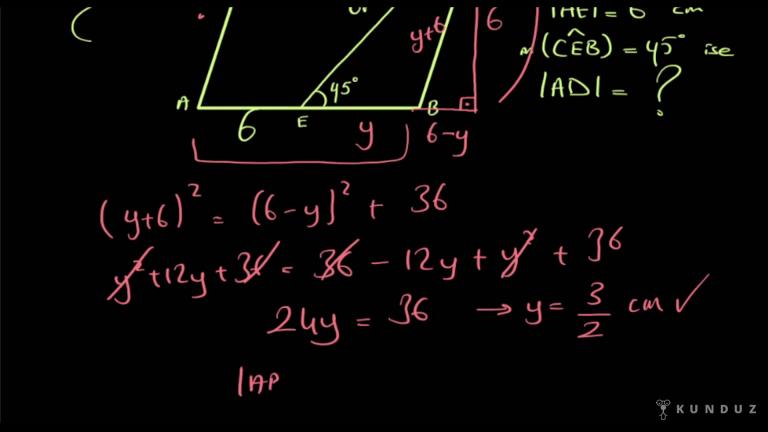 |AE| = 6 cm
m(CÊB) = 45° ise
|AD| = ?
y+6
6
45°
A
B
6
E
y
6-y
(y+6)² = (6-y)² + 36
y²+12y+36 = 36 - 12y + y² + 36
24y = 36 → y = 3/2 cm ✓
|AP
KUNDUZ